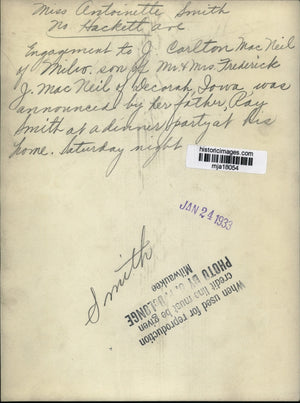 Miss Antoinette Smith
No Hackett ave
Engagement to J Carlton MacNeil
of Milw. son of Mr & Mrs. Frederick
J. MacNeil of Decorah, Iowa was
announced by her father, Ray
Smith at a dinner party at his
home. Saturday night
historicimages.com
mja18054
JAN 24 1933
Smith
When used for reproduction
credit line must be given
PHOTO BY DE LONGE
Milwaukee